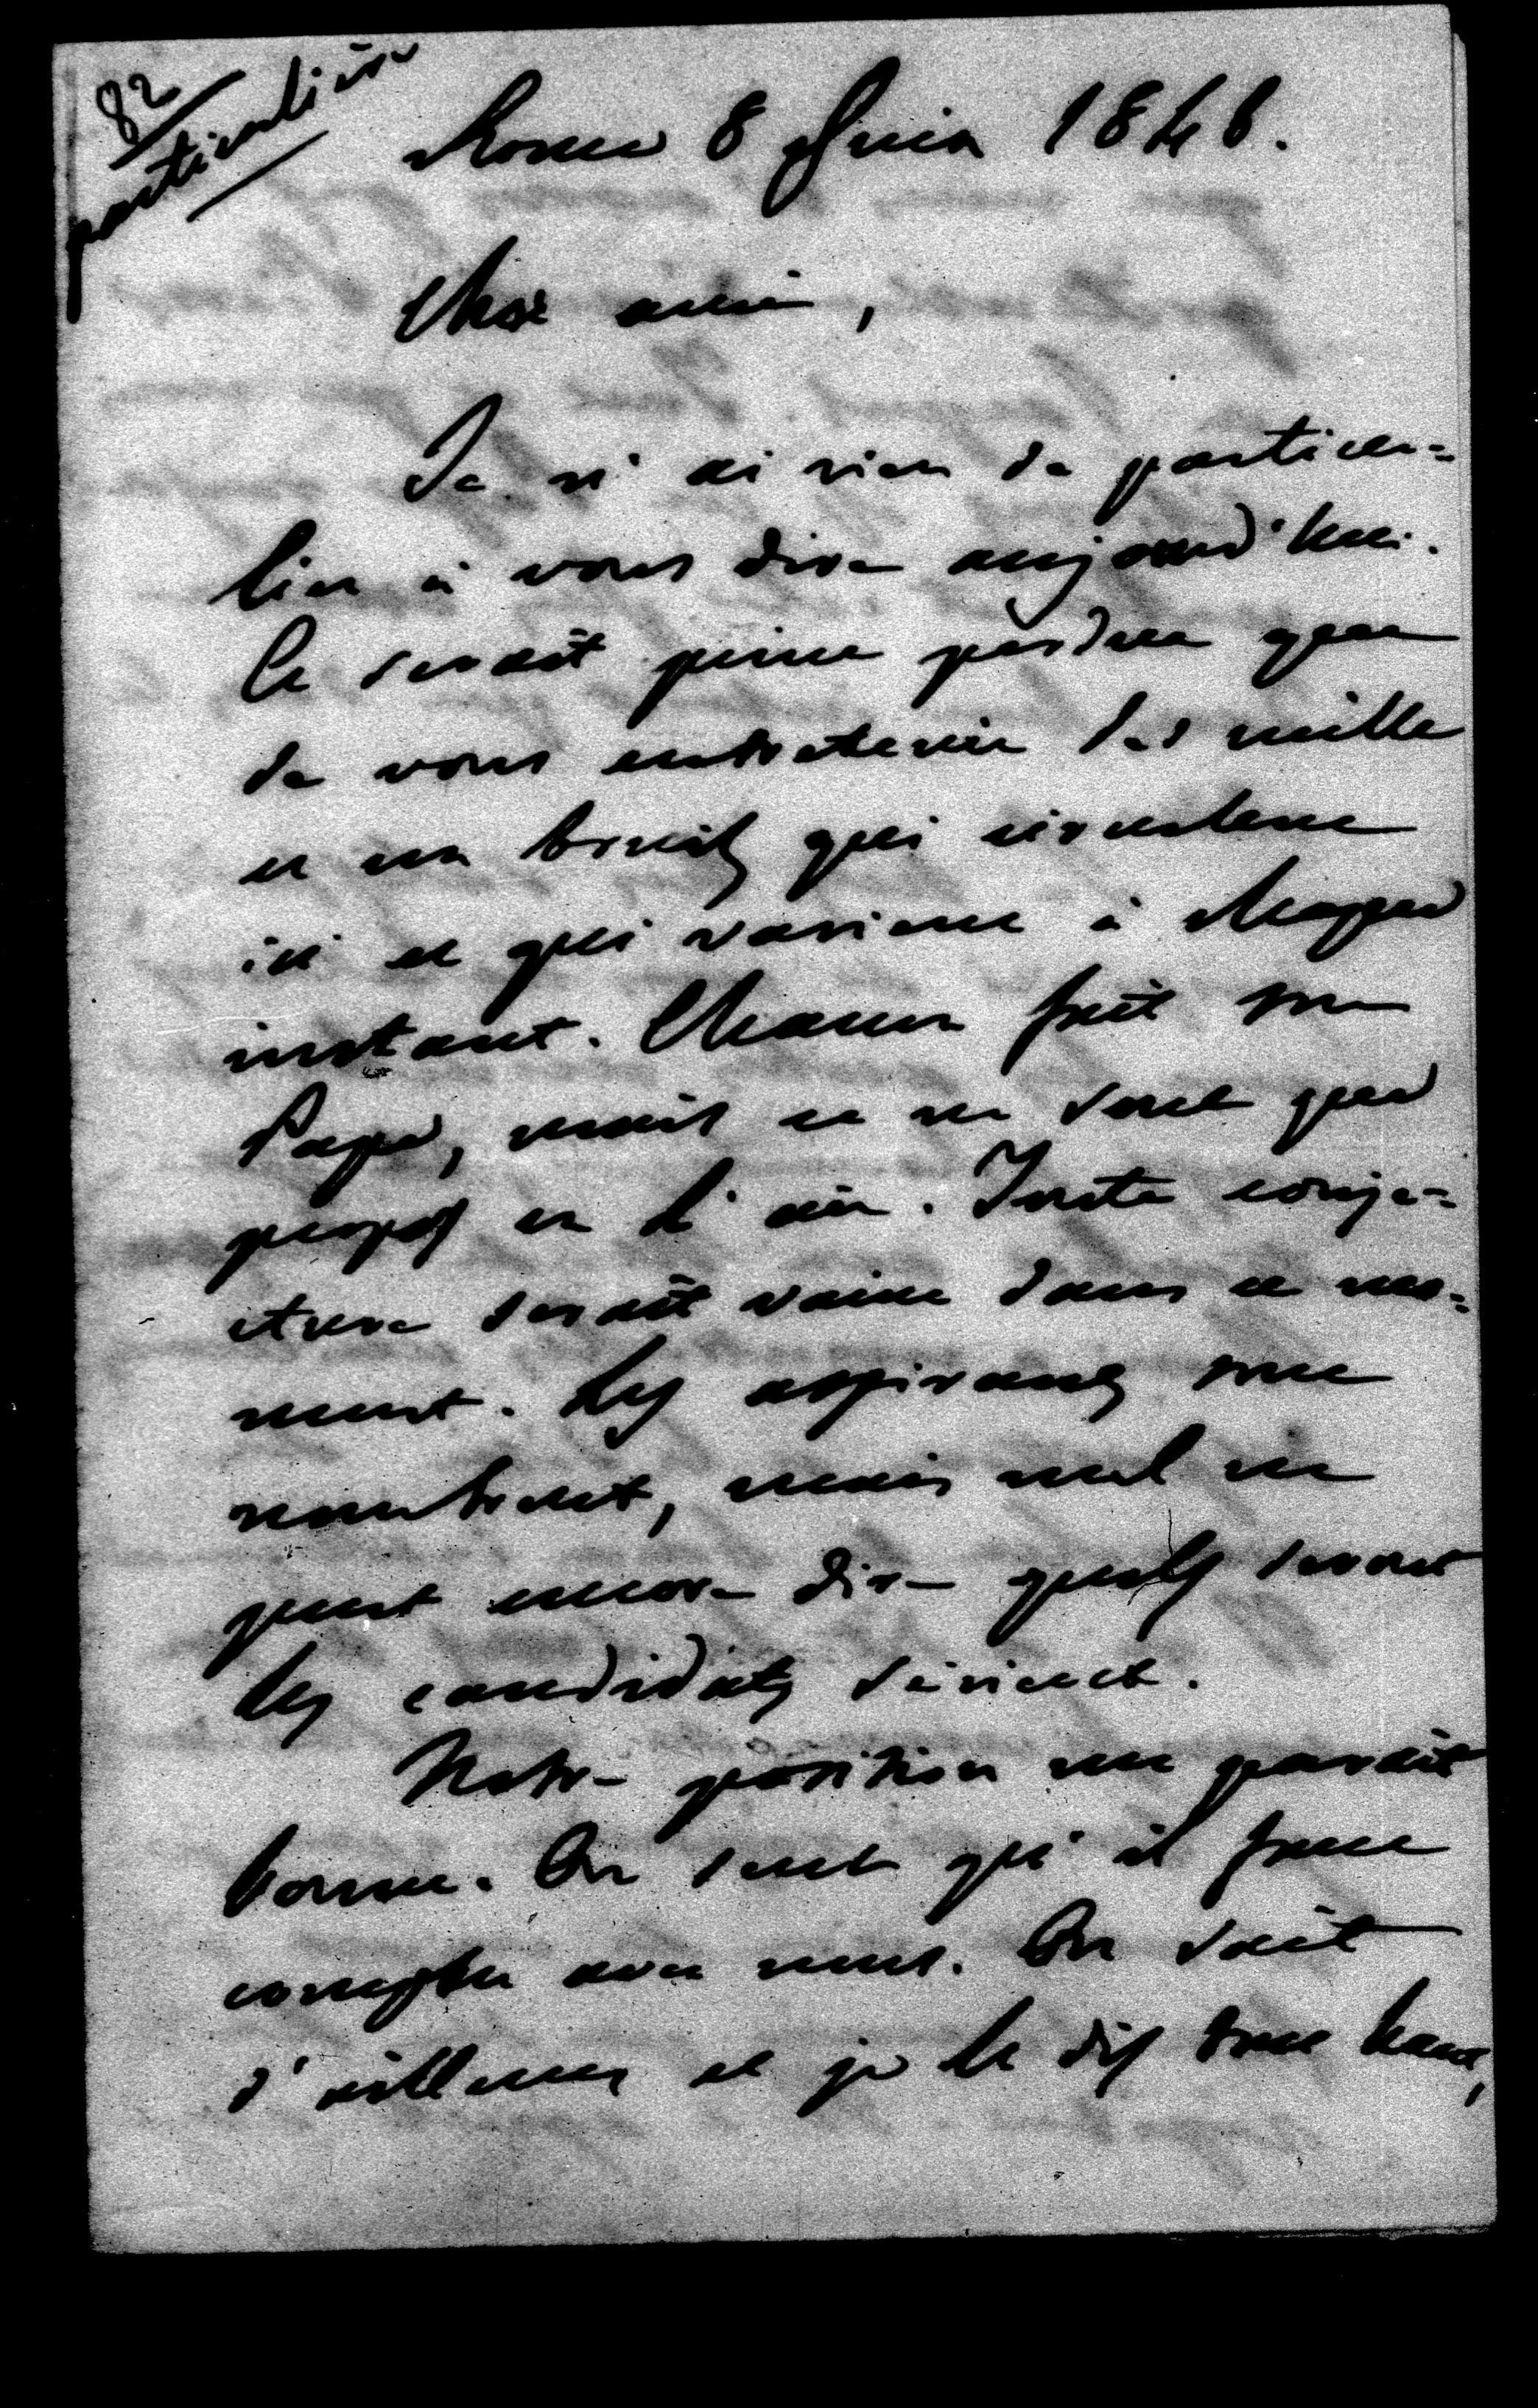 82
particulière
Rome 8 Juin 1846.
Cher ami,
Je n'ai rien de particu=
lier à vous dire aujourd'hui.
Ce serait peine perdue que
de vous entretenir des mille
et un bruits qui circulent
ici et qui varient à chaque
instant. Chacun fait son
Pape, mais ce ne sont que
propos en l'air. Toute conje=
cture serait vaine dans ce mo=
ment. Les aspirants sont
nombreux, mais nul ne
peut encore dire quels seront
les candidats sérieux.
Notre position me paraît
bonne. On sent qu'il faut
compter avec nous. On sait
d'ailleurs et je le dis tout haut,